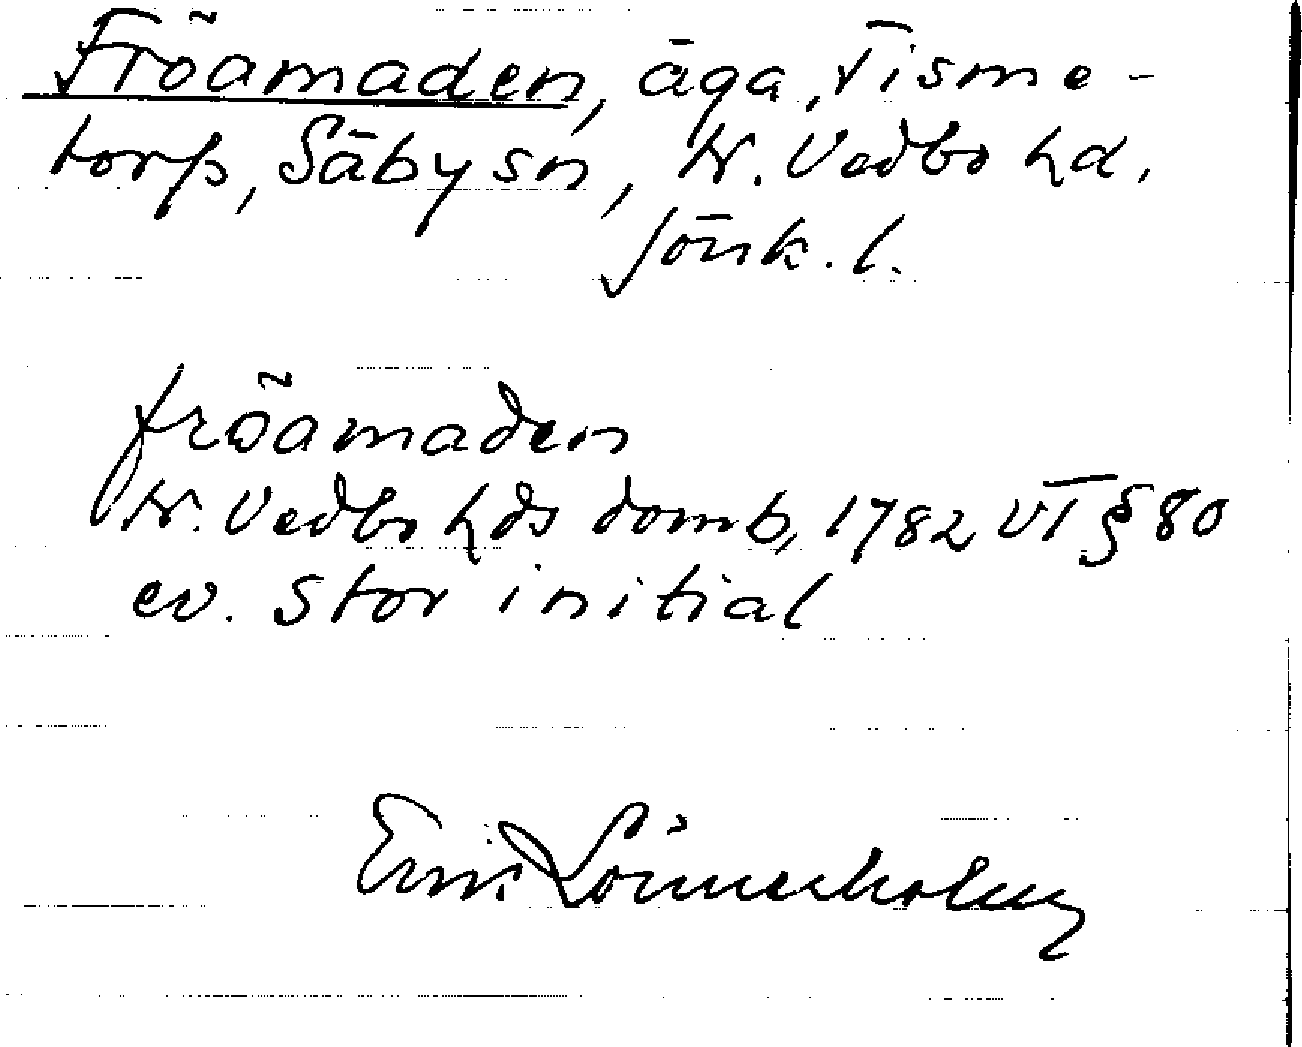 Fröamaden, äga, Tisme-
torp, Säby sn, N. Vedbo hd,
Jönk. l.
fröamaden
N. Vedbo hds domb, 1782 VT § 80
ev. stor initial
Emil Lönnerholm